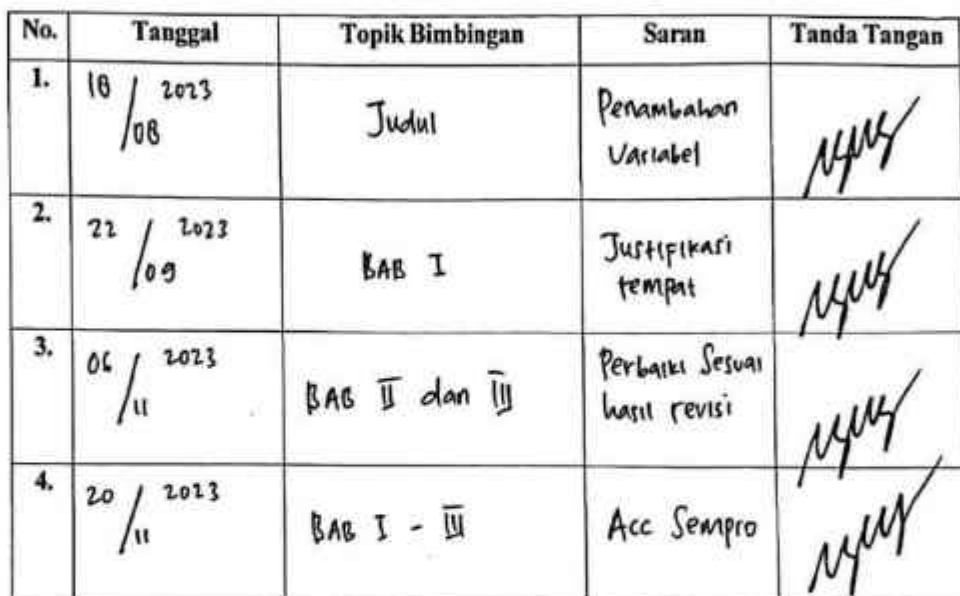 No. Tanggal Topik Bimbingan Saran Tanda Tangan
1. 18/08 2023 Judul Penambahan
Variabel
2. 22/09 2023 BAB I Justifikasi
tempat
3. 06/11 2023 BAB II dan III Perbaiki Sesuai
hasil revisi
4. 20/11 2023 BAB I - III Acc Sempro